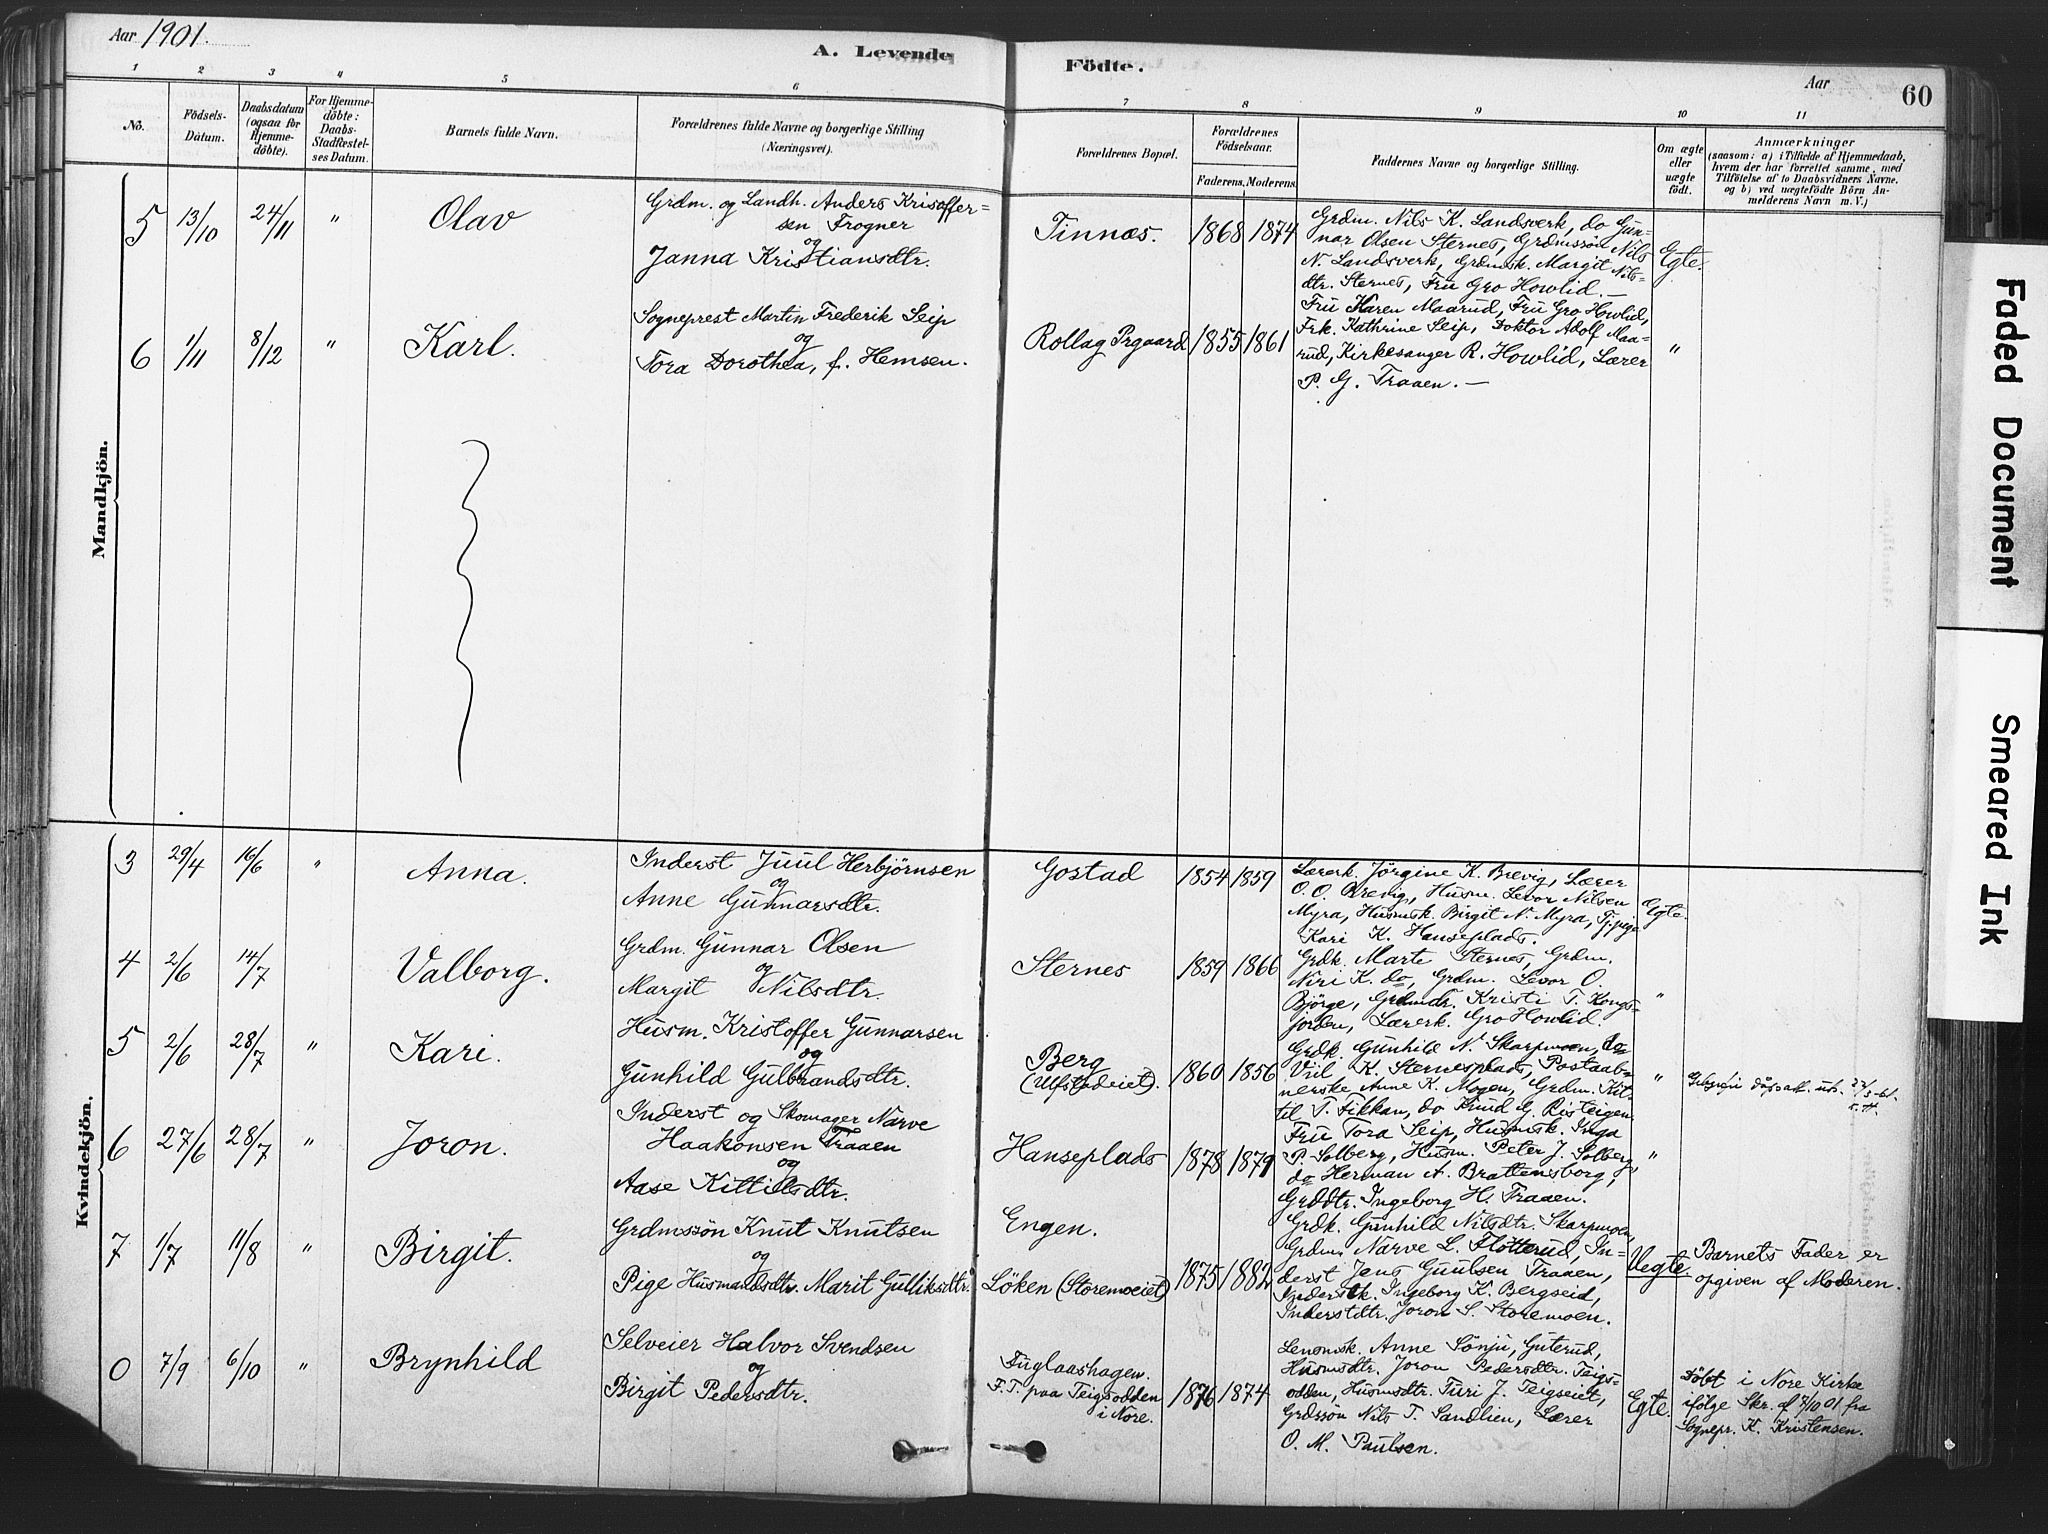 Aar 1901.
A. Levende Födte.
Aar
60
1 2 3 4 5 6 7 8 9 10 11
No.
Födsels-
Datum.
Daabsdatum
(ogsaa for
Hjemme-
döbte).
For Hjemme-
döbte:
Daabs-
Stadfæstel-
ses Datum.
Barnets fulde Navn.
Forældrenes fulde Navne og borgerlige Stilling
(Næringsvei).
Forældrenes Bopæl.
Forældrenes
Födselsaar.
Faderens. Moderens.
Faddernes Navne og borgerlige Stilling.
Om ægte
eller
uægte
födt.
Anmærkninger
(saasom: a) i Tilfælde af Hjemmedaab,
hvem der har forrettet samme, med
Tilföielse af to Daabsvidners Navne,
og b) ved uægtefödte Börn An-
melderens Navn m. V.)
Mandkjön.
5 13/10 24/11 " Olav
Grdm. og Landh. Anders Kristoffer-
sen Frogner
og
Janna Kristiansdtr.
Tinnæs. 1868 1874
Grdm. Nils K. Landsverk, do Gun-
nar Olsen Sternes, Grdmssön Nils
N. Landsverk, Grdmsk. Margit Nils-
dtr. Sternes, Fru Gro Howlid.—
Egte.
6 1/11 8/12 " Karl.
Sogneprest Martin Frederik Seip
og
Tora Dorothea, f. Hemsen.
Rollag Prgaard 1855 1861
Fru Karen Maarud, Fru Gro Howlid,
Frk. Kathrine Seip, Doktor Adolf Maa-
rud, Kirkesanger R. Howlid, Lærer
P. G. Traaen.—
"
Kvindekjön.
3 29/4 16/6 " Anna.
Inderst Juul Herbjørnsen
og
Anne Gunnarsdtr.
Gostad 1854 1859
Lærerk. Jörgine K. Brevig, Lærer
O. O. Brevig, Husm. Levor Nilsen
Myra, Husmsk. Birgit N. Myra, Tj.pige
Kari K. Hanseplads.
Egte.
4 2/6 14/7 Valborg.
Grdm. Gunnar Olsen
og
Margit Nilsdtr.
Sternes 1859 1866
Grdk. Marte Sternes, Grdm.
Niri K. do, Grdm. Levor O.
Björge, Grdmdtr. Kristi T. Kongs-
jorden, Lærerk. Gro Howlid.
"
5 2/6 28/7 " Kari.
Husm. Kristoffer Gunnarsen
og
Gunhild Gulbrandsdtr.
Berg
(Ulfstadeiet). 1860 1856
Grdk. Gunhild N. Skarpmoen, do
Vril K. Sternesplads, Postaab-
nerske Anne K. Mogen, Grdm. Kit-
til T. Fikkan, do Knud G. Risteigen
"
dåpsatt. uts.
6 27/6 28/7 " Joron.
Inderst og Skomager Narve
Haakonsen Traaen
og
Aase Kittilsdtr.
Hanseplads 1878 1879
Fru Tora Seip, Husmsk. Inga
P. Solberg, Husm. Peter J. Solberg,
do Herman A. Brattensborg,
Grddtr. Ingeborg H. Traaen.
"
7 1/7 11/8 " Birgit.
Grdmssön Knut Knutsen
og
Pige Husmandsdtr. Marit Gulliksdtr.
Engen.
Löken (Storemoeiet) 1875 1882
Grdk. Gunhild Nilsdtr. Skarpmoen,
Grdm. Narve L. Flötterud, In-
derst Jens Guulsen Traaen,
Inderstk. Ingeborg K. Bergseid,
Inderstdtr. Joron S. Storemoen.
Uegte.
Barnets Fader er
opgiven af Moderen.
0 7/9 6/10 " Brynhild
Selveier Halvor Svendsen
og
Birgit Pedersdtr.
Fuglaashagen.
F.T. paa Teigsodden
i Nore. 1876 1874
Lensmsk. Anne Sönju, Guterud,
Husmsdtr. Joron Pedersdtr. Teigs-
odden, Husmsdtr. Turi J. Teigseiet,
Grdssön Nils T. Sandlien, Lærer
O. M. Paulsen.
Egte.
Döbt i Nore Kirke
ifölge Skr. af 7/10 01 fra
Sognepr. K. Kristensen.
Faded Document
Smeared Ink